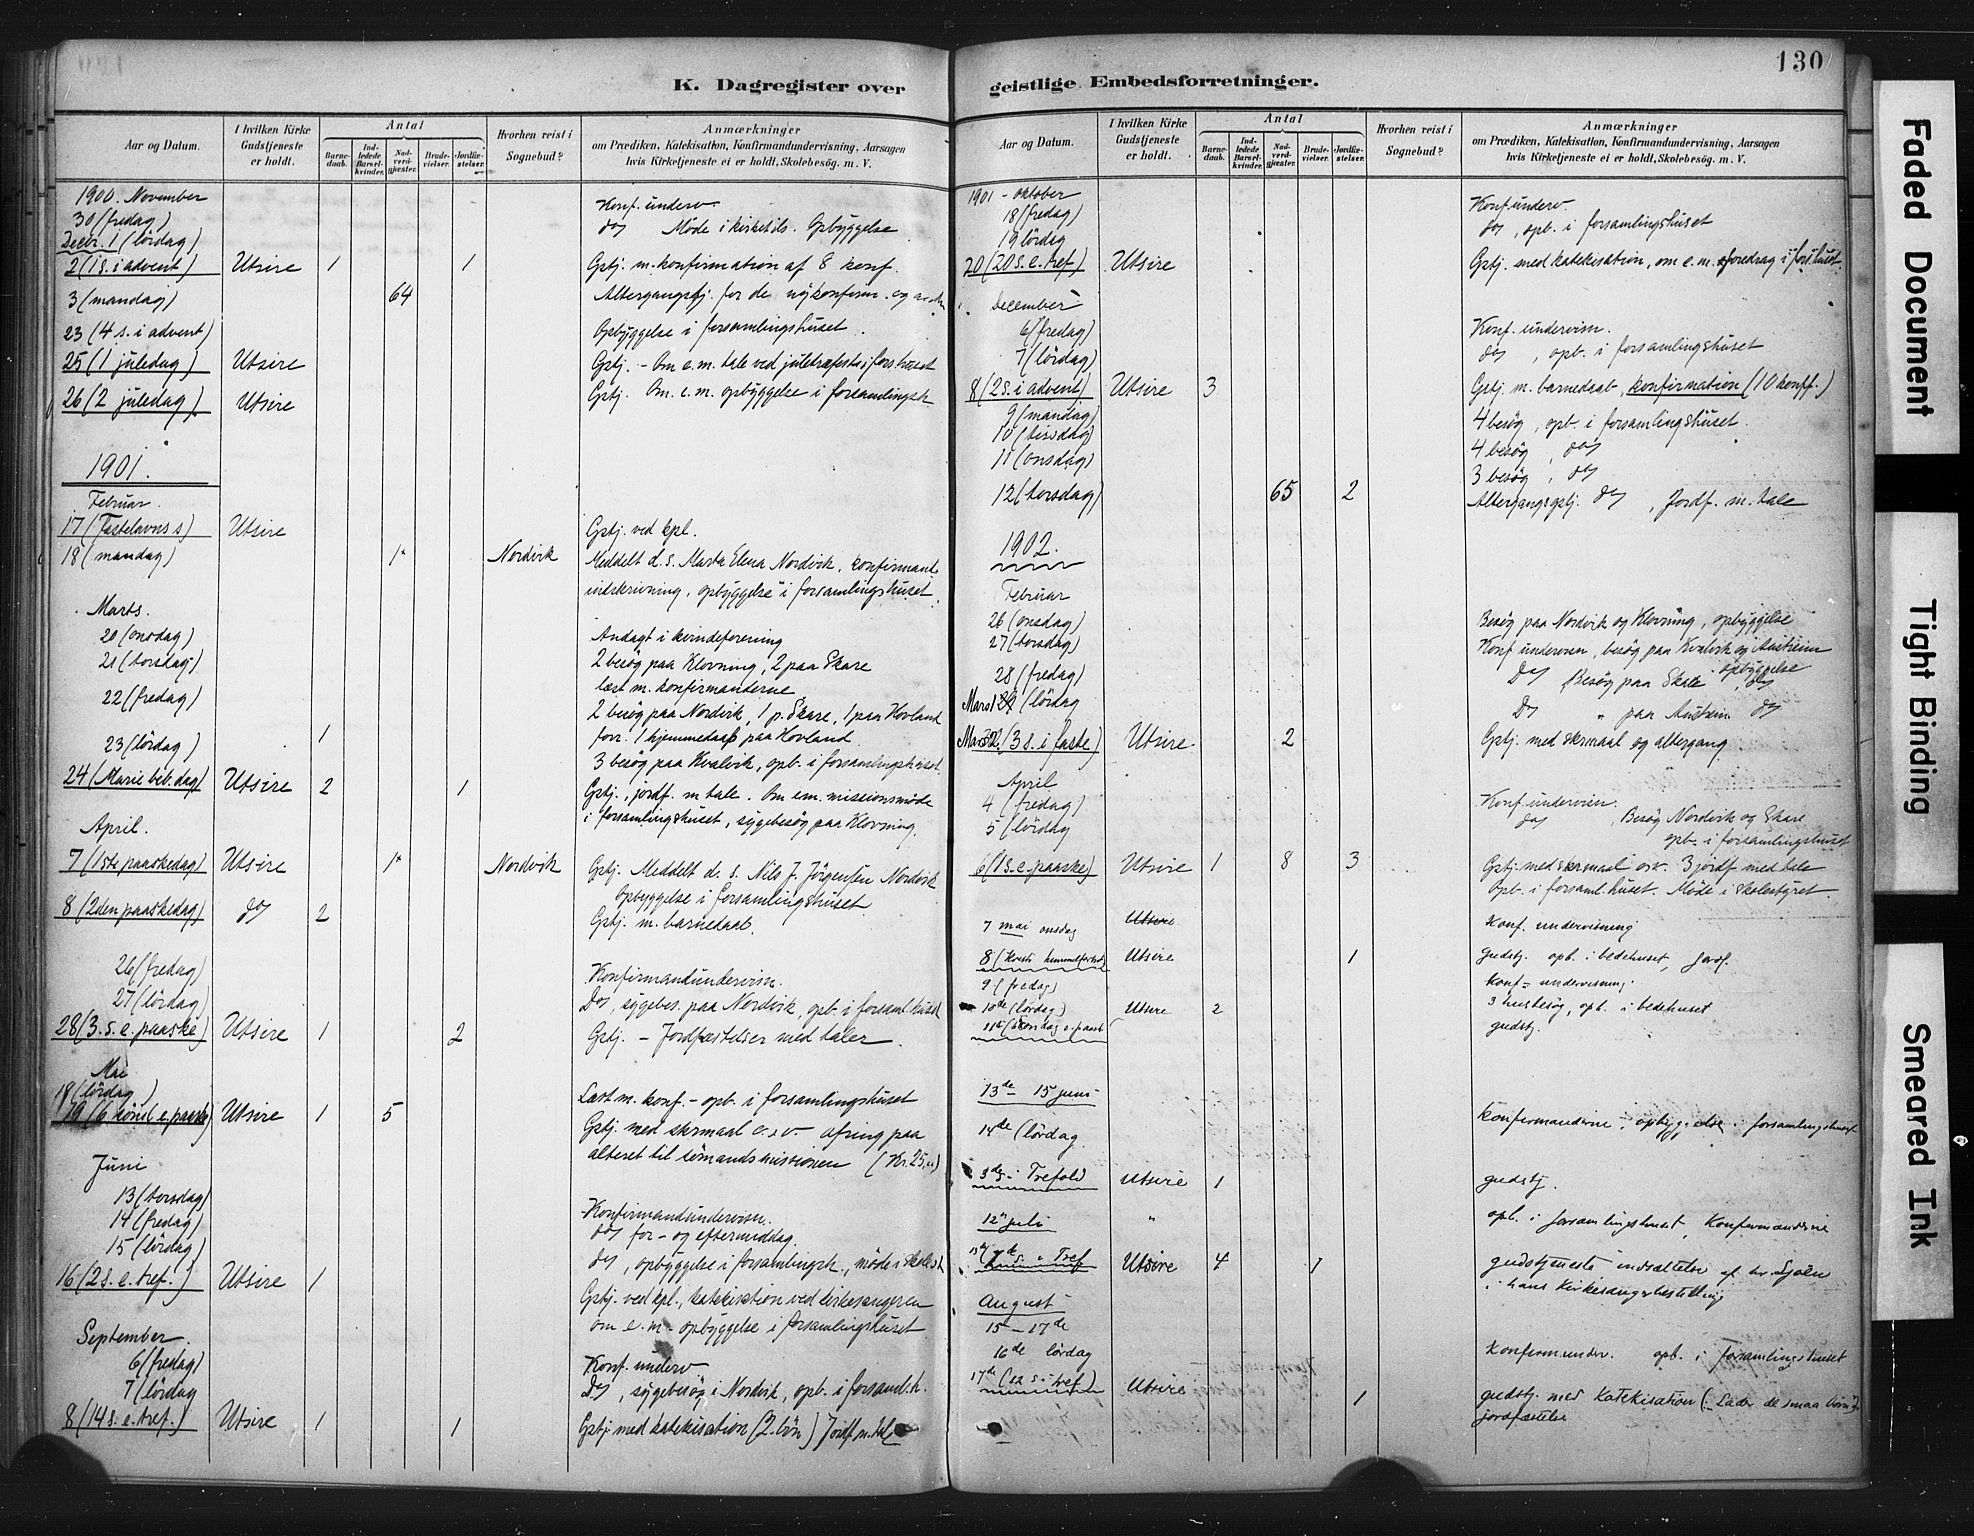 K. Dagregister over
Aar og Datum. I hvilken Kirke Gudstjeneste er holdt. Antal Barnedaab. Indledede Barselkvinder. Nadverdgjæster. Brudevielser. Jordfæstelser. Hvorhen reist i Sognebud? Anmærkninger om Prædiken, Katekisation, Konfirmandundervisning, Aarsagen hvis Kirketjeneste ei er holdt, Skolebesög. m. V.
1900. November
30 (fredag) Konf. underv.
Decbr. 1 (lördag) do, Möde i Opbyggelse
2 (1 s. i advent) Utsire 1 1 Gstj. m. konfirmation af 8 konf.
3 (mandag) 64 Altergangstj. for de nykonfirm. og
23 (4 s. i advent) Opbyggelse i forsamlingshuset.
25 (1 juledag) Utsire Gstj. - Om e.m. tale ved juletræfest i forshuset
26 (2 juledag) Utsire Gstj. Om e.m. opbyggelse i forsamlingsh.
1901.
Februar.
17 (Fastelavns s) Utsire Gstj. ved kpl.
18 (mandag) 1* Nordvik Meddelt d. s. Marta Elena Nordvik, konfirmant
indskrivning, opbyggelse i forsamlingshuset.
Marts.
20 (onsdag) Andagt i kvindeforening
21 (torsdag) 2 besög paa Klovning, 2 paa Skare
læst m. konfirmanderne
22 (fredag) 2 besög paa Nordvik, 1 p. Skare, 1 paa Hovland
1 forr. 1 hjemmedaab paa Hovland
23 (lördag) 3 besög paa Kvalvik, opb. i forsamlingshuset.
24 (Marie beb. dag) Utsire 2 1 Gstj., jordf. m. tale. Om em. missionsmöde
i forsamlingshuset, sygebesög paa Klovning.
April.
7 (1ste paaskedag) Utsire 1* Nordvik Gstj. Meddelt d. s. Nils J. Jörgensen Nordvik
Opbyggelse i forsamlingshuset
8 (2den paaskedag) do 2 Gstj. m. barnedaab.
26 (fredag) Konfirmandundervisn.
27 (lördag) Do, sygebes. paa Nordvik, opb. i forsaml.huset
28 (3. s. e. paaske) Utsire 1 2 Gstj. - Jordfæstelser med taler.
Mai
18 (lördag) Læst m. konf. - opb. i forsamlingshuset
19 (6 sönd. e. paaske) Utsire 1 5 Gstj. med skrmaal o.s.v. ofring paa
alteret til sömandsmissionen (Kr. 25,00)
Juni
13 (torsdag) Konfirmandundervisn.
14 (fredag) do for- og eftermiddag.
15 (lördag) do, opbyggelse i forsamlingsh., möde i skolest.
16 (2 s. e. tref.) Utsire 1 Gstj. ved kpl., katekisation ved kirkesangeren
om e.m. opbyggelse i forsamlingshuset
September.
6 (fredag) Konf. underv
7 (lördag Do, sygebesög i Nordvik, opb. i forsaml.h.
8 (14 s. e. tref.) Utsire 1 1 Gstj. med katekisation (2. bön) Jordf. m. tale
130
geistlige Embedsforretninger.
Aar og Datum. I hvilken Kirke Gudstjeneste er holdt. Antal Barnedaab. Indledede Barselkvinder. Nadverdgjæster. Brudevielser. Jordfæstelser. Hvorhen reist i Sognebud? Anmærkninger om Prædiken, Katekisation, Konfirmandundervisning, Aarsagen hvis Kirketjeneste ei er holdt, Skolebesög. m. V.
1901 - oktober
18 (fredag) Konf. underv.
19 lördag do, opb. i forsamlingshuset
20 (20 s. e. tref) Utsire Gstj. med katekisation, om e.m. foredrag i fors.huset.
December
6 (fredag) Konf. undervisn.
7 (lördag) do, opb. i forsamlingshuset
8 (2 s. i advent) Utsire 3 Gstj. m. barnedaab, konfirmation (10 konff.)
9 (mandag) 4 besög, opb. i forsamlingshuset.
10 (tirsdag) 4 besög, do
11 (onsdag) 3 besög, do
12 (torsdag) 65 2 Altergangsgstj. do, Jordf. m. tale
1902.
Februar
26 (onsdag) Besög paa Nordvik og Klovning, opbyggelse
27 (torsdag) Konf undervisn, besög paa Kvalvik og Austreim opbyggelse
28 (fredag) Do Besög paa Skare, do
Marst 1 (lördag Do " paa Austreim do
Mars 2. (3 s. i faste) Utsire 2 Gstj. med skrmaal og altergang
April
4 (fredag) Konf undervisn.
5 (lördag do, Besög Nordvik og Skare
opb. i forsamlingshuset
6 (1 s. e. paaske) Utsire 1 8 3 Gstj. med skrmaal osv. 3 jordf med tale
Opb. i forsaml.huset. Möde i skolestyret.
7 mai onsdag Utsire Konf. undervisning
8 (Kristi himmelfartsd) Utsire 1 gudstj. opb. i bedehuset, jordf.
9 (fredag) konf= undervisning.
10de (lördag) Utsire 2 3 husbesög, opb. i bedehuset
11te (söndag e. paaske gudstj.
13de - 15 juni
14de (lördag Konfirmanderne, opbyggelse i forsamlingshuset
3de s. i Trefold Utsire 1 gudstj.
12 juli " opb. i forsamlingshuset, Konfirmanderne
13/7 7de s. i Tref Utsire 4 1 gudstjeneste indsættelse af hr
i hans kirkesangerbestilling
August
15 - 17de
16de lördag Konfirmunderv. opb. i forsamlingshuset
17de (12 s. i tref) Utsire 1 gudstj. med Katekisation (Lader de smaa börn
jordfæstelse
Faded Document
Tight Binding
Smeared Ink